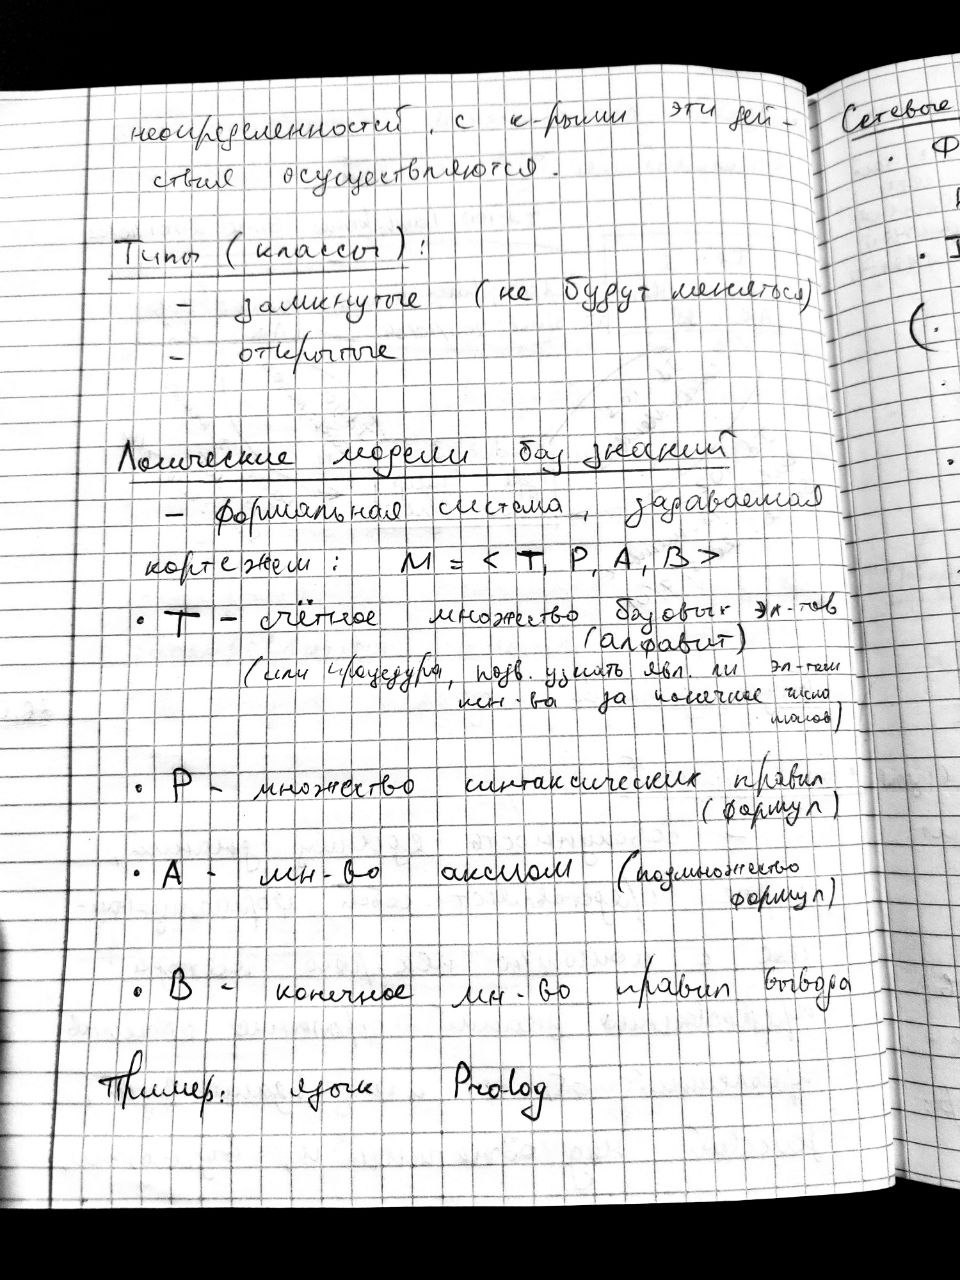 неопределенностей, с к-рыми эти дей-
ствия осуществляются.
Типы (классы):
- замкнутые (не будут меняться)
- открытые
Логические модели баз знаний
- формальная система, задаваемая
кортежем: M = < T, P, A, B >
• T - счётное множество базовых эл-тов
(алфавит)
(или процедура, позв. узнать явл. ли эл-том
мн-ва за конечное число
шагов)
• P - множество синтаксических правил
(формул)
• A - мн-во аксиом (подмножество
формул)
• B - конечное мн-во правил вывода
Пример: язык Prolog
Сетевые
• Ф